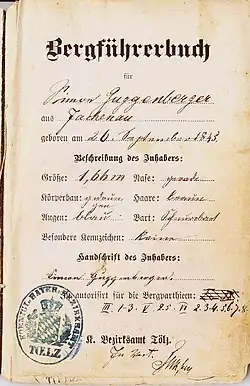 Bergführerbuch
für
Simon Guggenberger
aus Jachenau
geboren am 26 September 1845.
Beschreibung des Inhabers:
Größe: 1,66m Nase: gerade
Körperbau: Haare: braun
Augen: blau Bart: Schnurrbart
Besondere Kennzeichen: Keine
Handschrift des Inhabers:
Simon Guggenberger
autorisirt für die Bergparthieen:
III 1-3. V 25. II 2.3.4.5.6.7.8.
K. Bezirksamt Tölz.
TÖLZ